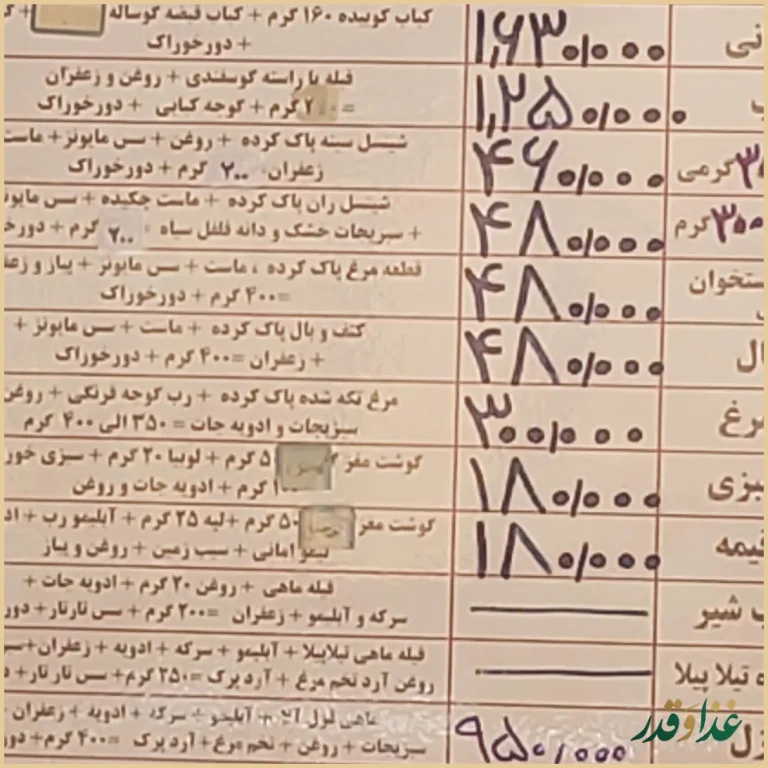 کباب کوبیده ۱۶۰ گرم + کباب قبضه گوساله + ک ۱,۶۳۰/۰۰۰ نی
+ دورخوراک
فیله یا راسته گوسفندی + روغن و زعفران ۱,۲۵۰/۰۰۰ ب
= ۲۰۰ گرم + گوجه کبابی + دورخوراک
شیسل سینه پاک کرده + روغن + سس مایونز + ماست ۴۶۰/۰۰۰ گرمی
زعفران ۲۰۰ گرم + دورخوراک
شیسل ران پاک کرده + ماست چکیده + سس مایو ۴۸۰/۰۰۰ ۳۰۰ گرم
+ سبزیجات خشک و دانه فلفل سیاه ۲۰۰ گرم + دورخ
قطعه مرغ پاک کرده ، ماست + سس مایونز + پیاز و زعف ۴۸۰/۰۰۰ ستخوان
=۴۰۰ گرم + دورخوراک
کتف و بال پاک کرده + ماست + سس مایونز + ۴۸۰/۰۰۰ ال
+ زعفران =۴۰۰ گرم + دورخوراک
مرغ تکه شده پاک کرده + رب گوجه فرنگی + روغن ۳۰۰/۰۰۰ مرغ
سبزیجات و ادویه جات = ۳۵۰ الی ۴۰۰ گرم
گوشت مغز گرم + لوبیا ۲۰ گرم + سبزی خور ۱۸۰/۰۰۰ بزی
گرم + ادویه جات و روغن
گوشت مغز ۵۰ گرم + لپه ۲۵ گرم + آبلیمو رب + اد ۱۸۰/۰۰۰ قیمه
لیمو امانی + سیب زمین + روغن و پیاز
فیله ماهی + روغن ۲۰ گرم + ادویه جات + ب شیر
سرکه و آبلیمو + زعفران =۲۰۰ گرم + سس تارتار + دور
فیله ماهی تیلاپیلا + آبلیمو + سرکه + ادویه + زعفران+س ه تیلا پیلا
روغن آرد تخم مرغ + آرد پرک =۲۵۰ گرم+ سس تار تار + د
ماهی قزل آلا + آبلیمو + سرکه + ادویه + زعفران ۹۵۰/۰۰۰ زل
سبزیجات + روغن + تخم مرغ+ آرد پرک =۴۰۰ گرم+ دور
غذا و قدر